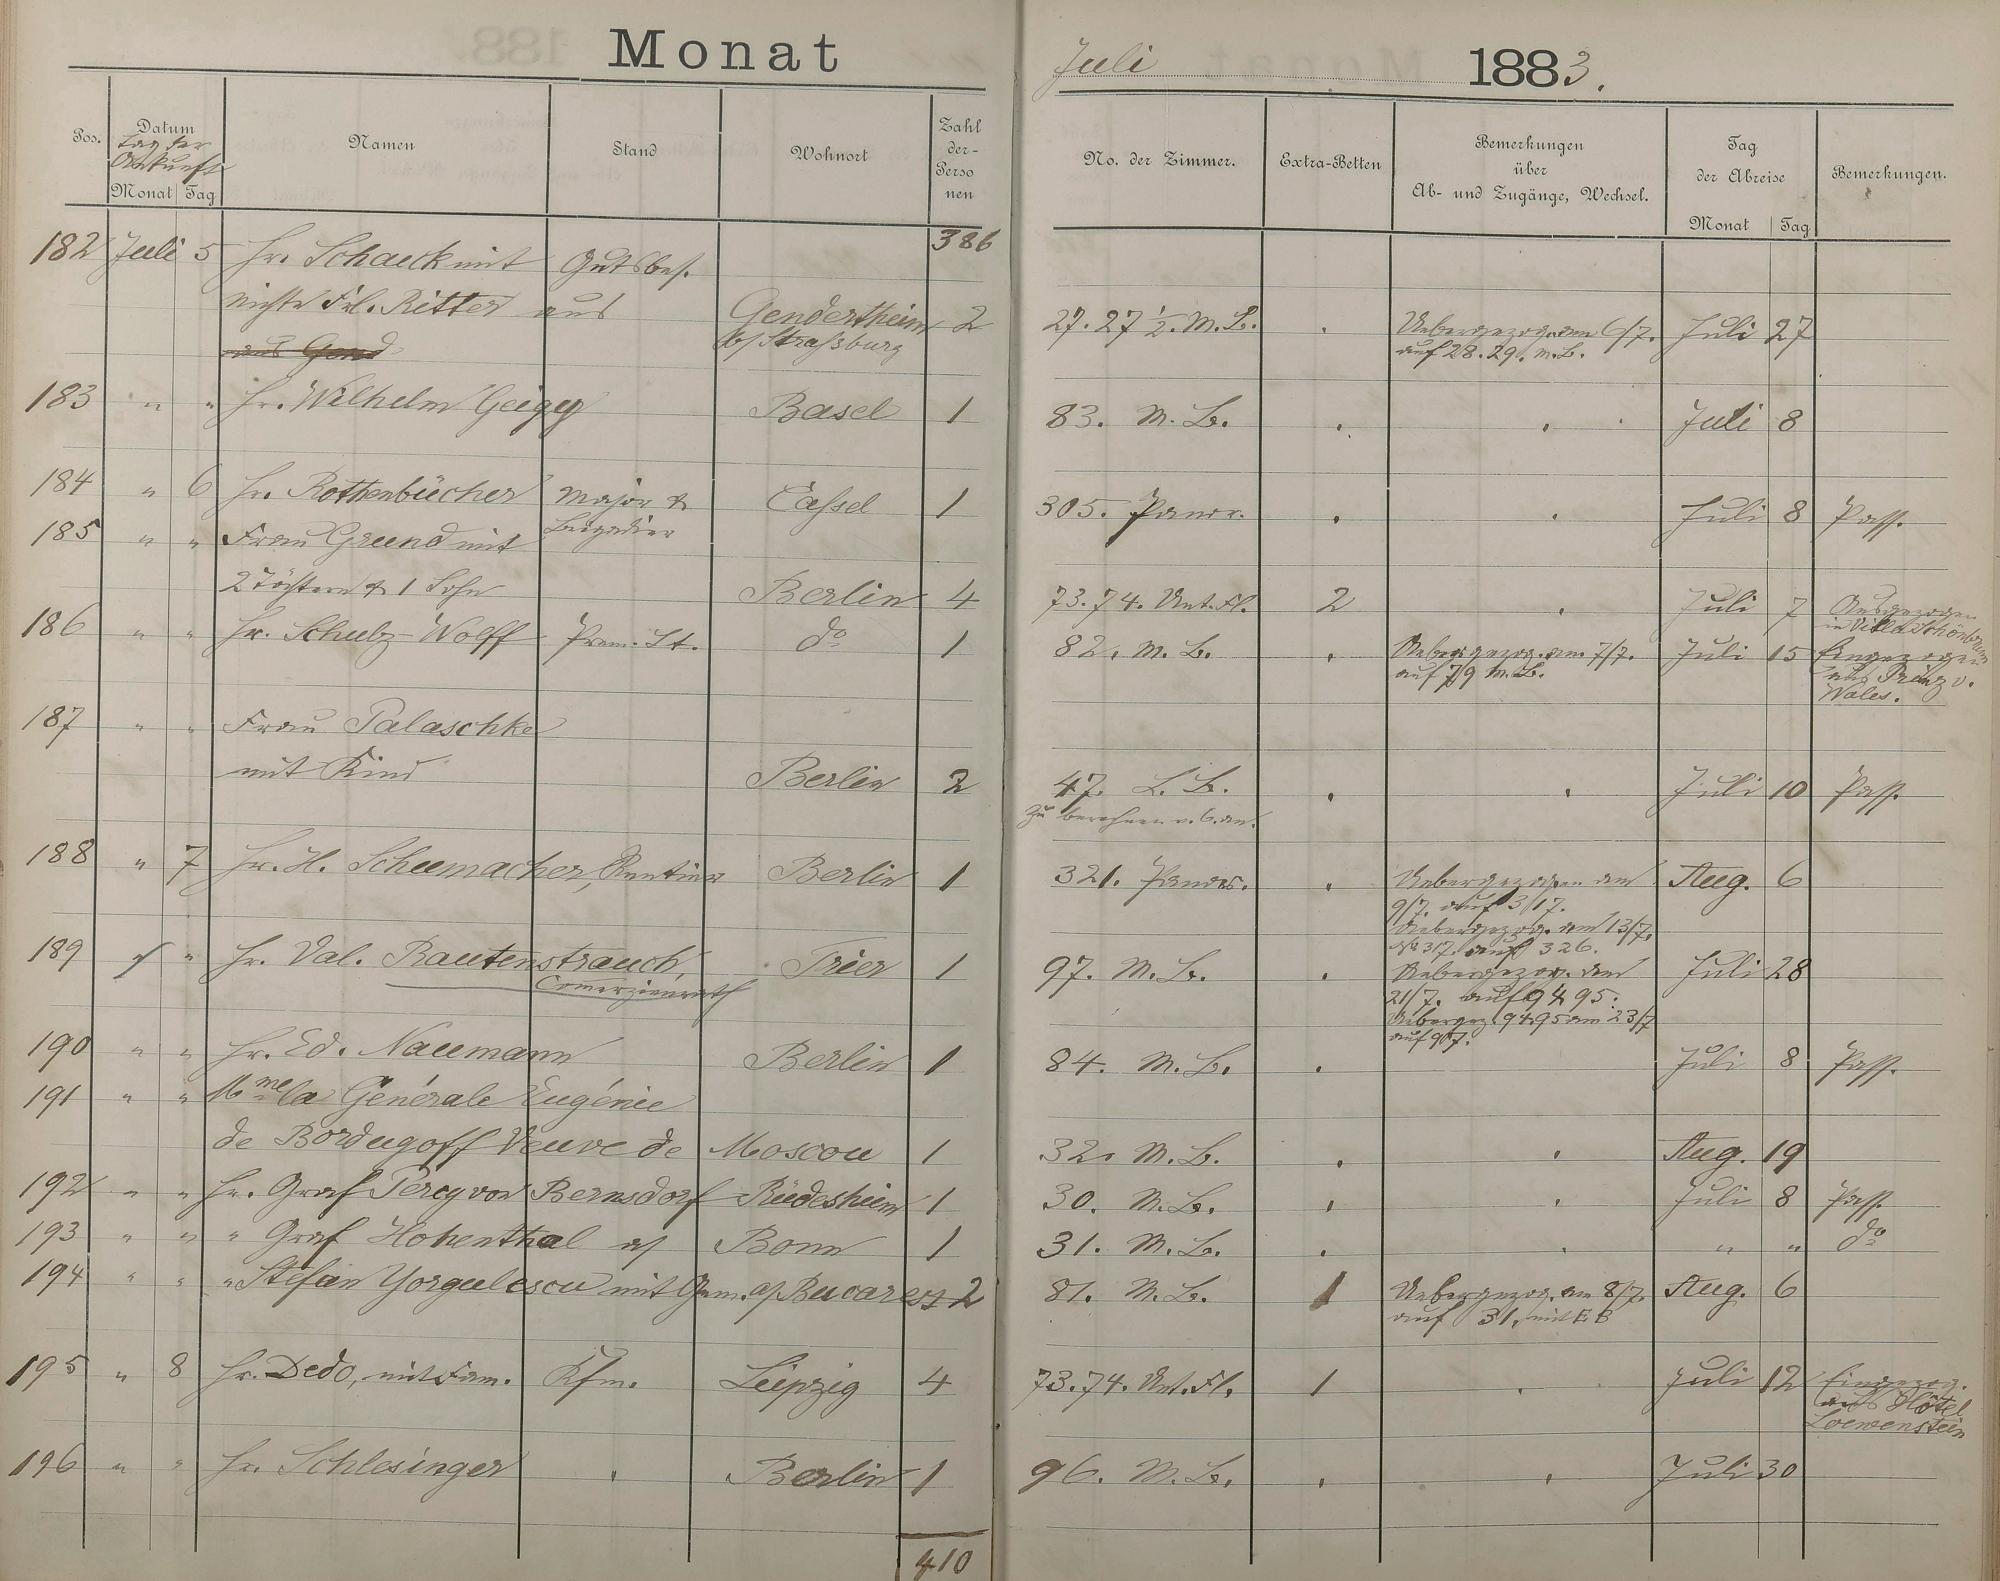 Monat
Juli 1883.
Pos.
Datum
Tag der
Ankunft
Monat Tag
Namen
Stand
Wohnort
Zahl
der-
Perso
nen
No. der Zimmer.
Extra-Betten
Bemerkungen
über
Ab- und Zugänge, Wechsel.
Tag
der Abreise
Monat Tag
Bemerkungen.
386
182 Juli 5 Hr. Schaeck mit Gutsbes.
Nichte Frl. Ritter aus Gendertheim 2 27. 27 ½. M. B. Uebergezog. am 6/7. Juli 27
aus Gend b/ Straßburg auf 28. 29. M. B.
183 " " Hr. Wilhelm Geigy Basel 1 83. M. B. Juli 8
184 " 6 Hr. Rothenbücher Major & Cassel 1 305. Panor. Juli 8 Pass.
Brigadier
185 " " Frau Grund mit
2 Töchtern & 1 Sohn Berlin 4 73. 74. Unt. Fl. 2 Juli 7 Ausgezogen
in Villa Schönbrun
186 " " Hr. Schulz-Wolff Prem. Lt. do 1 82. M. B. Uebergezog. am 7/7. Juli 15 Eingezogen
auf 79 M. B. aus Prinz v.
Wales.
187 " " Frau Palaschke
mit Kind Berlin 2 47. L. B. Juli 10 Pass.
Zu berechnen v. 6. an.
188 " 7 Hr. H. Schumacher, Rentier Berlin 1 321. Panor. Uebergezogen am Aug. 6
9/7. auf 317.
Uebergezog. am 13/7.
No 317. auf 326.
189 " " Hr. Val. Rautenstrauch, Trier 1 97. M. B. Uebergezog. am Juli 28
Comerzienrath 21/7. auf 94 95.
Uebergez. 94 95 am 23/7
auf 97.
190 " " Hr. Ed. Naumann Berlin 1 84. M. B. Juli 8 Pass.
191 " " Mme la Générale Eugénie
de Bordugoff Veuve de Moscou 1 32. M. B. Aug. 19
192 " " Hr. Graf Percy von Bernsdorf Rüdesheim 1 30. M. B. Juli 8 Pass.
193 " " " Graf Hohenthal a/ Bonn 1 31. M. B. " " do
194 " " " Stefan Yorgulescu mit Gem. a/ Bucarest 2 81. M. B. 1 Uebergezog. am 8/7. Aug. 6
auf 31. mit E B
195 " 8 Hr. Dedo, mit Fam. Kfm. Leipzig 4 73. 74. Unt. Fl. 1 Juli 12 Eingezog.
aus Hôtel
Loewenstein
196 " " Hr. Schlesinger Berlin 1 96. M. B. Juli 30
410